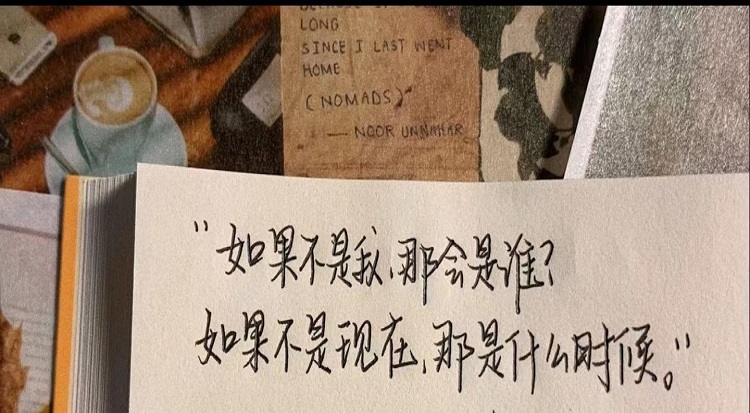 LONG
SINCE I LAST WENT
HOME
(NOMADS)
— NOOR UNNAHAR
"如果不是我,那会是谁?
如果不是现在,那是什么时候。"